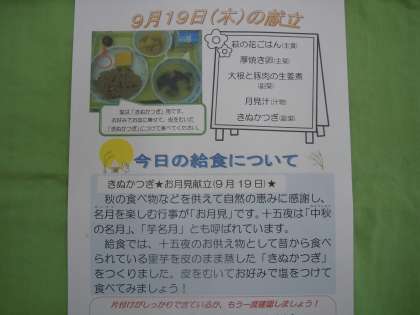 9月19日(木)の献立
萩の花ごはん(主食)
厚焼き卵(主菜)
大根と豚肉の生姜煮
(副菜)
月見汁(汁物)
きぬかつぎ(副菜)
塩は「きぬかつぎ」用です。
お好みでお皿に乗せて、皮をむいた
「きぬかつぎ」につけて食べてください。
今日の給食について
きぬかつぎ★お月見献立(9月19日)★
秋の食べ物などを供えて自然の恵みに感謝し、
名月を楽しむ行事が「お月見」です。十五夜は「中秋
の名月」、「芋名月」とも呼ばれています。
給食では、十五夜のお供え物として昔から食べ
られている里芋を皮のまま蒸した「きぬかつぎ」
をつくりました。皮をむいてお好みで塩をつけて
食べてみましょう!
片付けがしっかりできているか、もう一度確認しましょう!